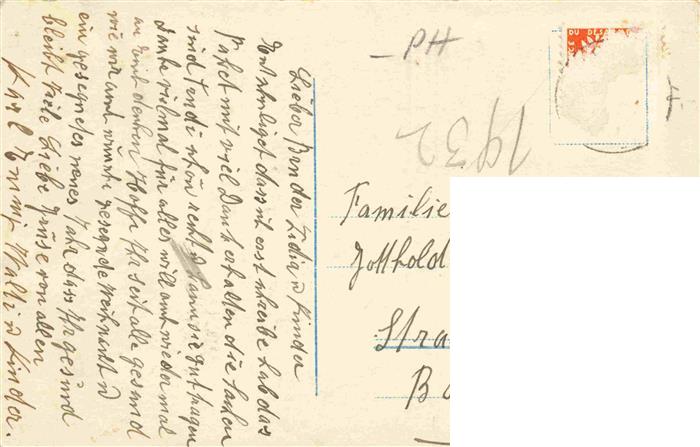 Lieber Bruder Lidia u Kinder
dass ich erst schreibe hab das
Paket mit viel Dank erhalten die Sachen
sind schön kann sie gut tragen
danke vielmal für alles will auch wieder mal
an Euch denken Hoffe Ihr seit alle gesund
wie wir auch wünsche gesegnete Weihnacht u
ein gesegnetes neues Jahr dass Ihr gesund
bleibt viele Liebe Grüse von allen
Karl Emmy u Kinder.
- PH
1932
Familie
Gotthold
Stra
B